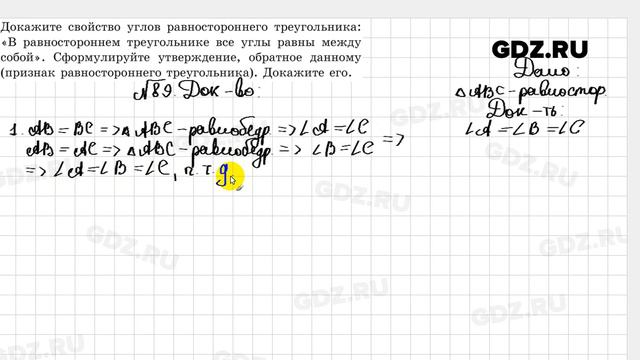 Докажите свойство углов равностороннего треугольника:
«В равностороннем треугольнике все углы равны между
собой». Сформулируйте утверждение, обратное данному
(признак равностороннего треугольника). Докажите его.
GDZ.RU
Дано:
△ABC-равностор.
Док-ть:
∠A=∠B=∠C
№89. Док-во:
1. AB=BC=>△ABC-равнобедр.=>∠A=∠C
AB=AC=>△ABC-равнобедр.=>∠B=∠C =>
=>∠A=∠B=∠C, ч.т.д.
GDZ.RU
GDZ.RU
GDZ.RU
GDZ.RU
GDZ.RU